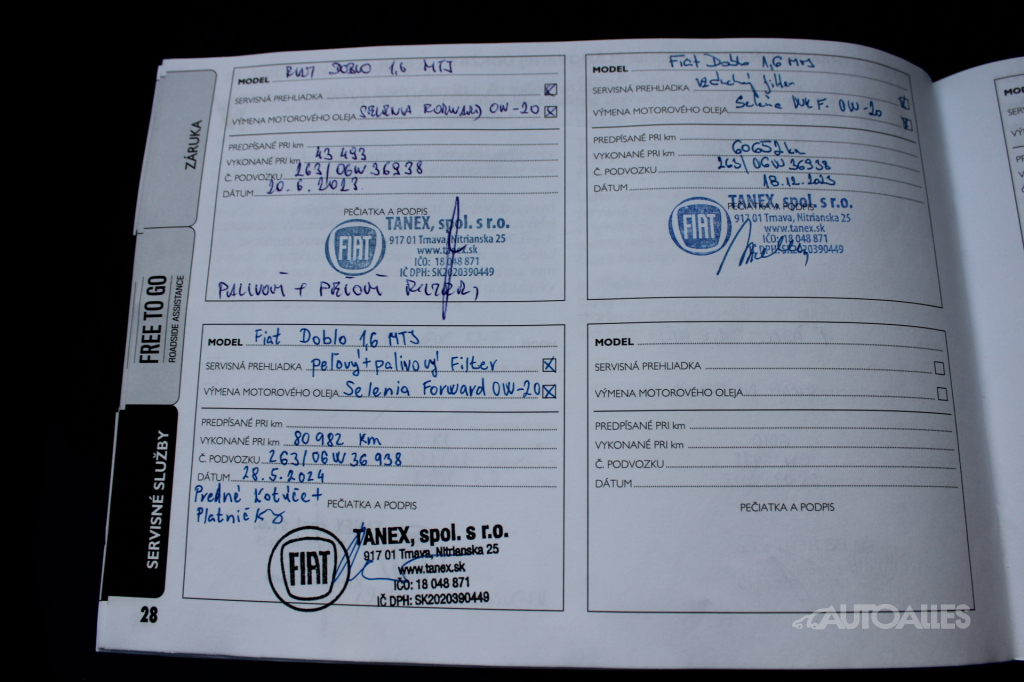 ZÁRUKA
FREE TO GO
ROADSIDE ASSISTANCE
SERVISNÉ SLUŽBY
MODEL DOBLO 1,6 MTJ
SERVISNÁ PREHLIADKA
VÝMENA MOTOROVÉHO OLEJA SELENIA FORWARD 0W-20
PREDPÍSANÉ PRI km
VYKONANÉ PRI km 43 493
Č. PODVOZKU 263/06W36938
DÁTUM 20.6.2023
PEČIATKA A PODPIS
FIAT
TANEX, spol. s r.o.
917 01 Trnava, Nitrianska 25
www.tanex.sk
IČO: 18 048 871
IČ DPH: SK2020390449
PALIVOVÍ + PEĽOVÍ
MODEL Fiat Doblo 1,6 MTJ
vzduchový filter
SERVISNÁ PREHLIADKA
VÝMENA MOTOROVÉHO OLEJA Selenia WR F. 0W-20
PREDPÍSANÉ PRI km
VYKONANÉ PRI km 60652 km
Č. PODVOZKU 263/06W36938
DÁTUM 18.12.2023
PEČIATKA A PODPIS
FIAT
TANEX, spol. s r.o.
917 01 Trnava, Nitrianska 25
www.tanex.sk
IČO: 18 048 871
IČ DPH: SK2020390449
MODEL Fiat Doblo 1,6 MTJ
SERVISNÁ PREHLIADKA peľový + palivový Filter
VÝMENA MOTOROVÉHO OLEJA Selenia Forward 0W-20
PREDPÍSANÉ PRI km
VYKONANÉ PRI km 80 982 km
Č. PODVOZKU 263/06W36 938
DÁTUM 28.5.2024
Predné kotúče +
Platničky
PEČIATKA A PODPIS
FIAT
TANEX, spol. s r.o.
917 01 Trnava, Nitrianska 25
www.tanex.sk
IČO: 18 048 871
IČ DPH: SK2020390449
MODEL
SERVISNÁ PREHLIADKA
VÝMENA MOTOROVÉHO OLEJA
PREDPÍSANÉ PRI km
VYKONANÉ PRI km
Č. PODVOZKU
DÁTUM
PEČIATKA A PODPIS
28
AUTOALLES